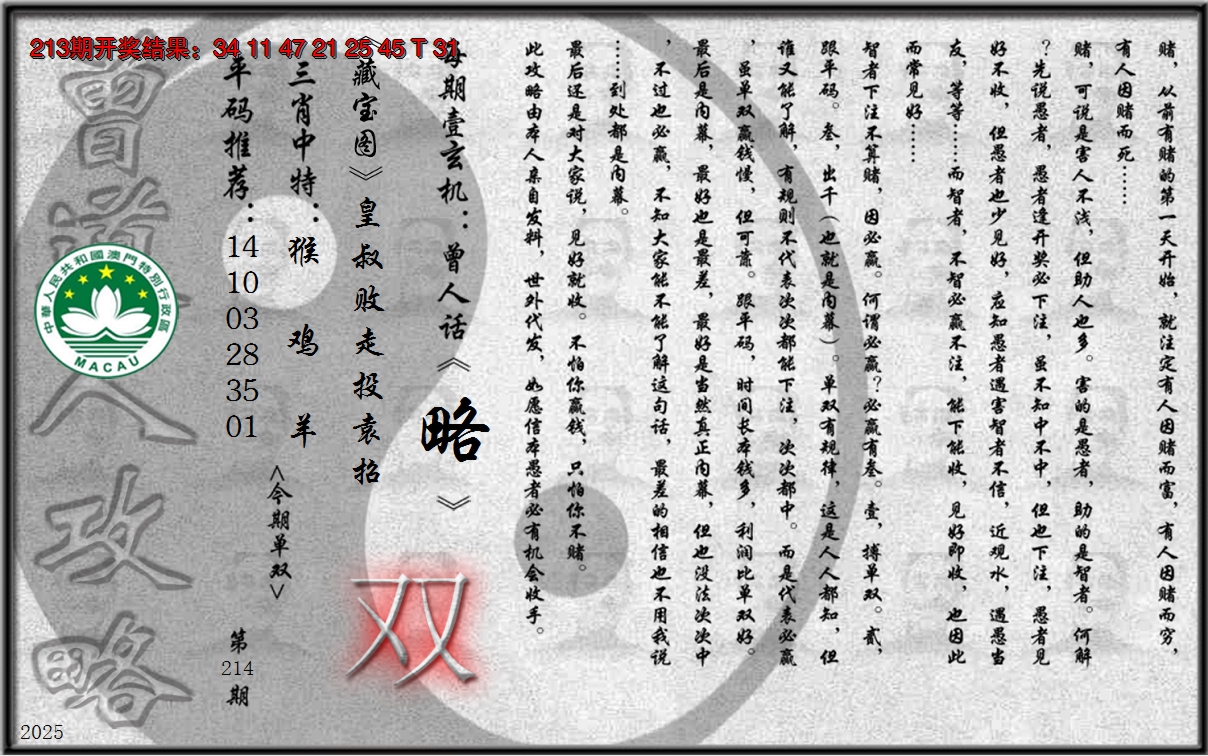 213期开奖结果：34 11 47 21 25 45 T 31
赌，从前有赌的第一天开始，就注定有人因赌而富，有人因赌而穷，
有人因赌而死……
赌，可说是害人不浅，但助人也多。害的是愚者，助的是智者。何解
？先说愚者，愚者逢开奖必下注，虽不知中不中，但也下注，愚者见
好不收，但愚者也少见好，应知愚者遇害智者不信，近观水，遇愚当
友，等等……而智者，不智必赢不注，能下能收，见好即收，也因此
而常见好……
智者下注不算赌，因必赢。何谓必赢？必赢有叁。壹，搏单双。贰，
跟平码。叁，出千（也就是内幕）。单双有规律，这是人人都知，但
谁又能了解，有规则不代表次次都能下注，次次都中。而是代表必赢
，虽单双赢钱慢，但可靠。跟平码，时间长本钱多，利润比单双好。
最后是内幕，最好也是最差，最好是当然真正内幕，但也没法次次中
，不过也必赢，不知大家能不能了解这句话，最差的相信也不用我说
……到处都是内幕。
最后还是对大家说，见好就收。不怕你赢钱，只怕你不赌。
此攻略由本人亲自发料，世外代发，如愿信本愚者必有机会收手。
每期壹玄机：曾人话《略》
《藏宝图》皇叔败走投袁招
双
三肖中特：猴 鸡 羊
<今期单双>
平码推荐：14 10 03 28 35 01
第214期
曾道人攻略
中華人民共和國澳門特別行政區
MACAU
2025